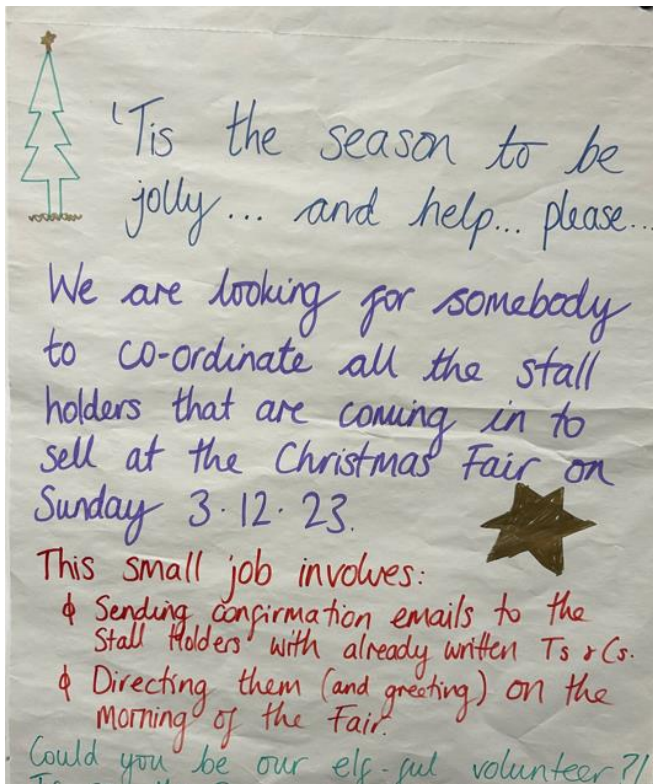 'Tis the season to be
jolly... and help... please...
We are looking for somebody
to co-ordinate all the stall
holders that are coming in to
sell at the Christmas Fair on
Sunday 3·12·23.
This small job involves:
Sending confirmation emails to the
Stall Holders with already written Ts & Cs.
Directing them (and greeting) on the
morning of the Fair.
Could you be our elf-ful volunteer?!